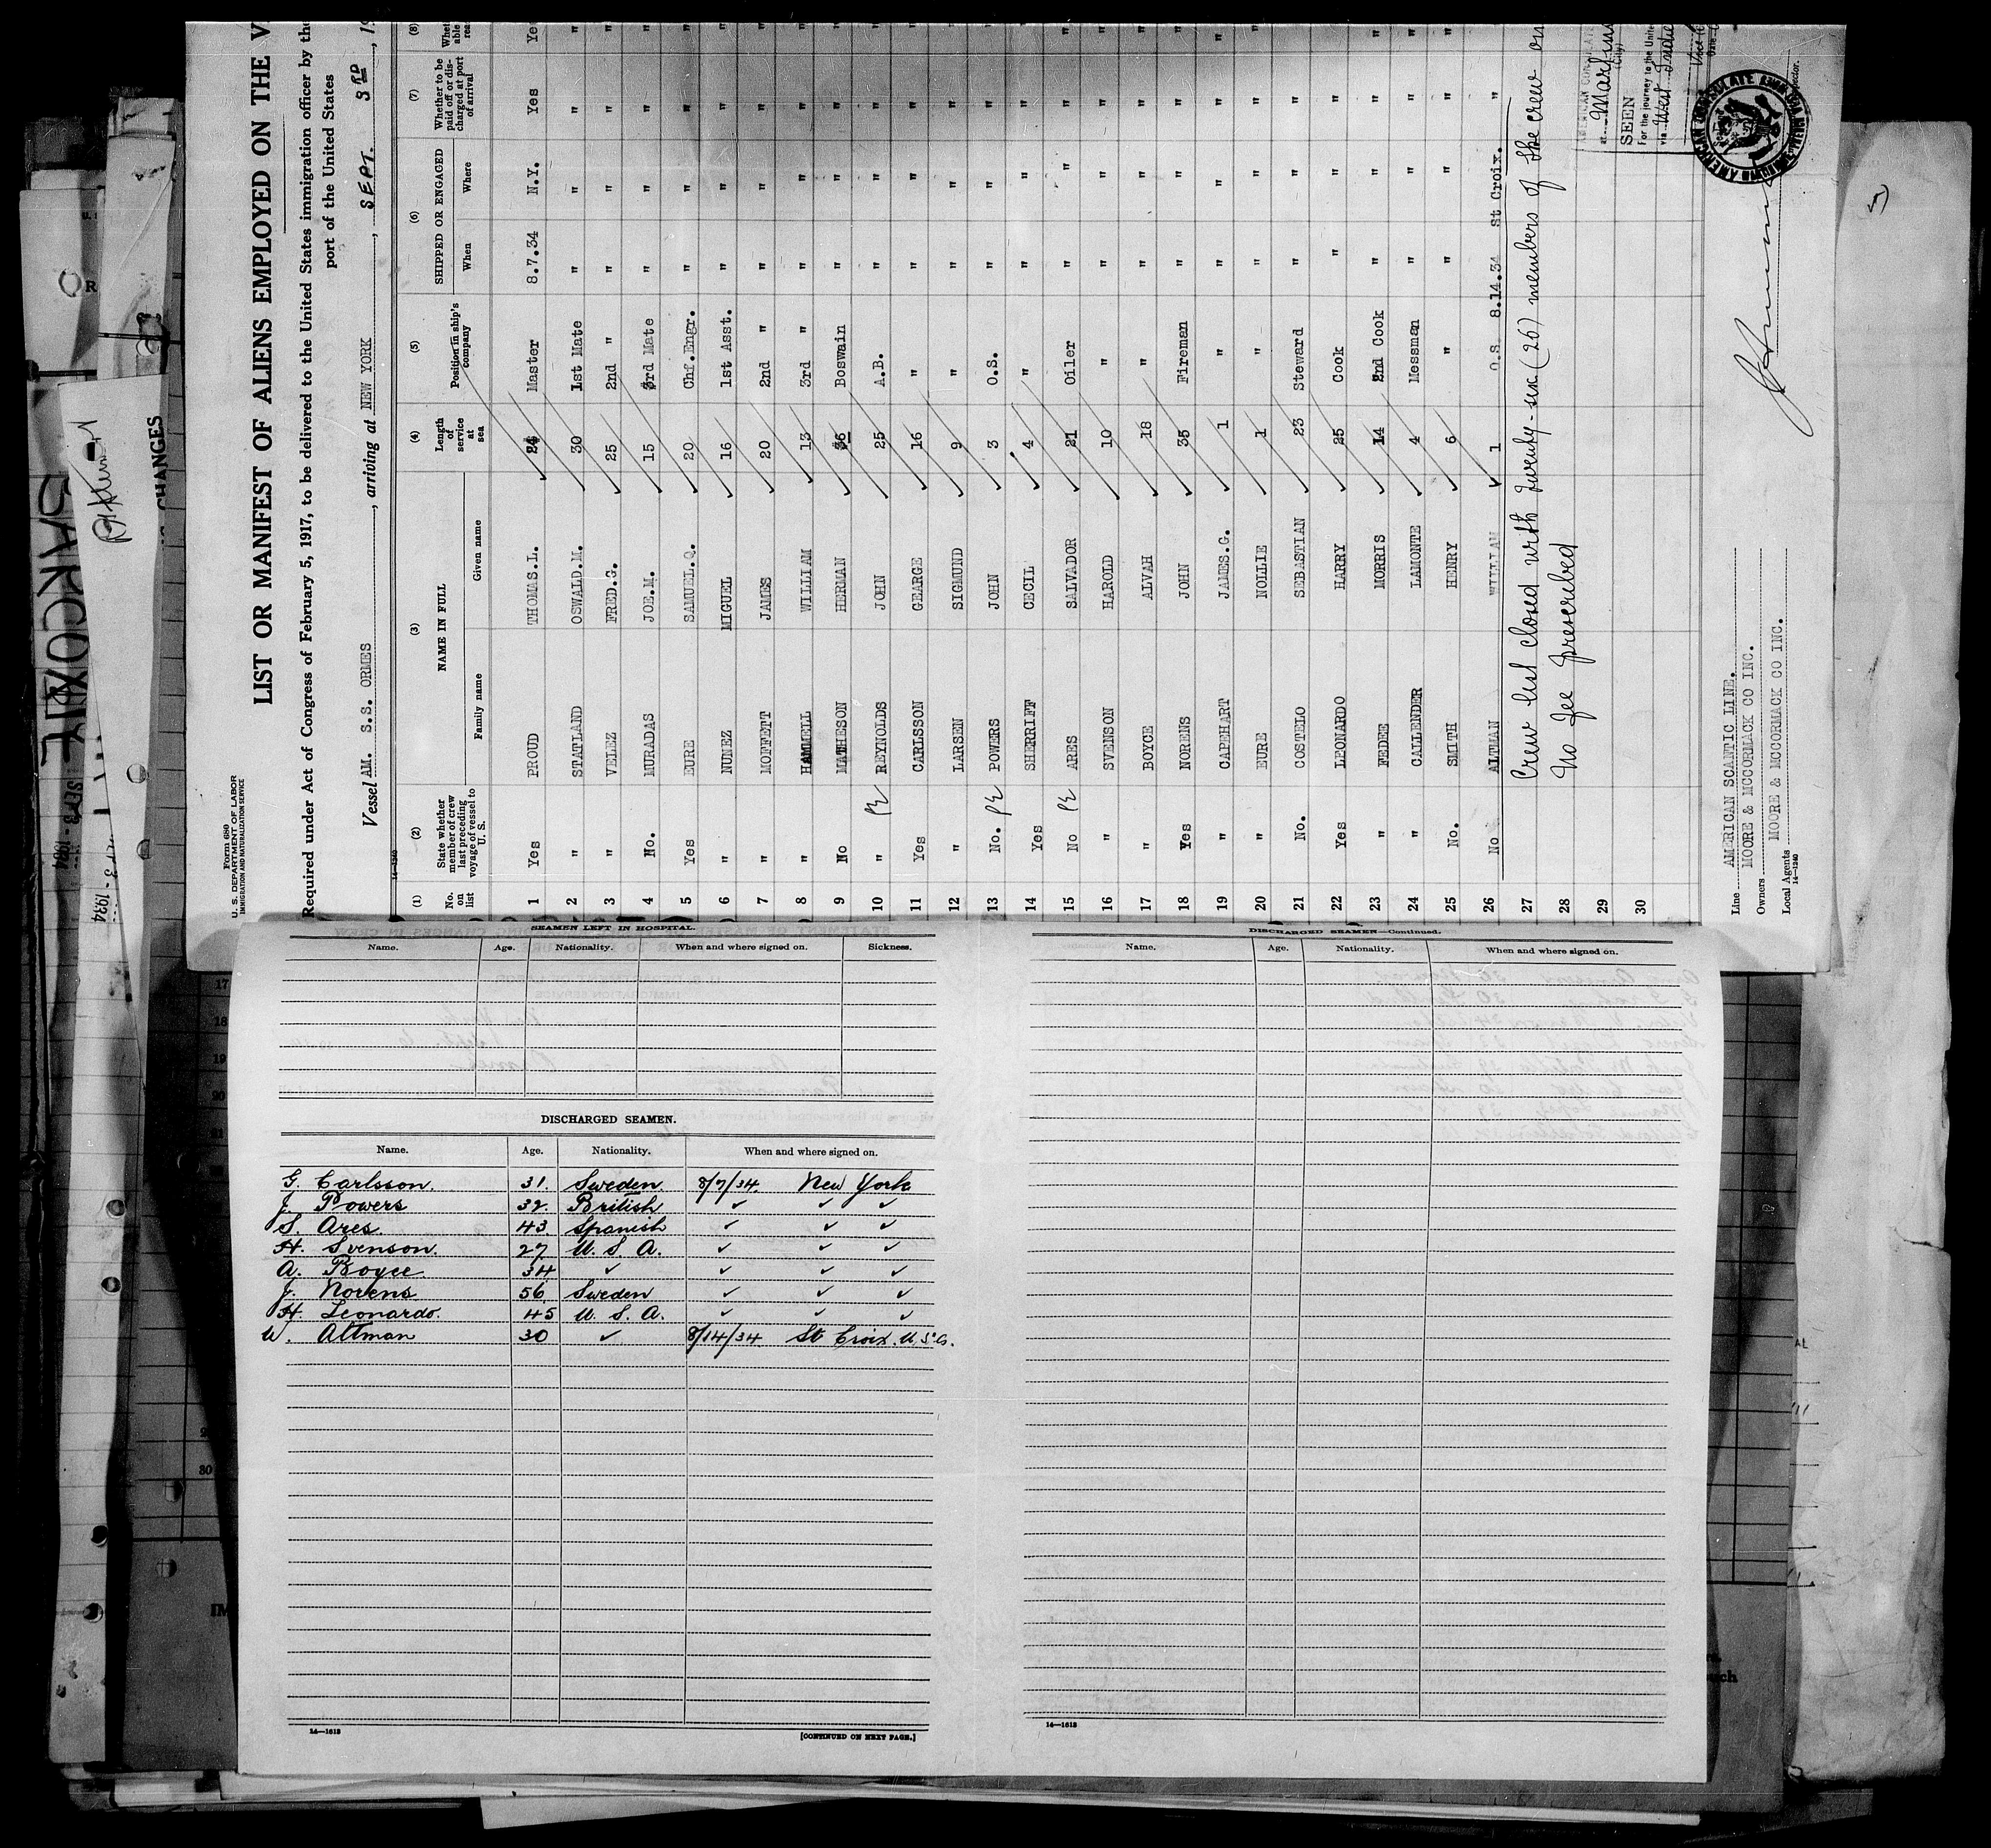 Form 680
U. S. DEPARTMENT OF LABOR
IMMIGRATION AND NATURALIZATION SERVICE
LIST OR MANIFEST OF ALIENS EMPLOYED ON THE V
Required under Act of Congress of February 5, 1917, to be delivered to the United States immigration officer by the
port of the United States
Vessel AM. S.S. ORMES, arriving at NEW YORK, SEPT. 3RD, 19
14-1240
(1) (2) (3) (4) (5) (6) (7) (8)
No. on list
State whether member of crew last preceding voyage of vessel to U. S.
NAME IN FULL
Family name Given name
Length of service at sea
Position in ship's company
SHIPPED OR ENGAGED
When Where
Whether to be paid off or discharged at port of arrival
1 Yes PROUD THOMAS.L. 24 Master 8.7.34 N.Y. Yes Ye
2 " STATLAND OSWALD.M. 30 1st Mate " " " "
3 " VELEZ FRED.G. 25 2nd " " " " "
4 No. MURADAS JOE.M. 15 3rd Mate " " " "
5 Yes EURE SAMUEL.Q. 20 Chf.Engr. " " " "
6 " NUNEZ MIGUEL 16 1st Asst. " " " "
7 " MOFFETT JAMES 20 2nd " " " " "
8 " HAMMELL WILLIAM 13 3rd " " " " "
9 No MATHESON HERMAN 36 Boswain " " " "
10 " REYNOLDS JOHN 25 A.B. " " " "
11 Yes CARLSSON GEARGE 16 " " " " "
12 " LARSEN SIGMUND 9 " " " " "
13 No. POWERS JOHN 3 O.S. " " " "
14 Yes SHERRIFF CECIL 4 " " " " "
15 No ARES SALVADOR 21 Oiler " " " "
16 " SVENSON HAROLD 10 " " " " "
17 " BOYCE ALVAH 18 " " " " "
18 Yes NORENS JOHN 35 Fireman " " " "
19 " CAPEHART JAMES.G. 1 " " " " "
20 " EURE NOLLIE 1 " " " " "
21 No. COSTELO SEBASTIAN 23 Steward " " "
22 Yes LEONARDO HARRY 25 Cook " " "
23 " FEDEE MORRIS 14 2nd Cook " " " "
24 " CALLENDER LAMONTE 4 Messman " " " "
25 No. SMITH HENRY 6 " " " " "
26 No ALTMAN WILLIAM 1 O.S. 8.14.34 St Croix. "
27 Crew list closed with twenty-six (26) members of the crew on
28 No fee prescribed
29
30
AMERICAN CONSULATE
at Martini
(City)
SEEN
For the journey to the Unite
via West Indie
Line AMERICAN SCANTIC LINE.
Owners MOORE & MCCORMACK CO INC.
Local Agents MOORE & MCCORMACK CO INC.
14-1240
SEP 3 - 1934
CHANGES
SEAMEN LEFT IN HOSPITAL.
Name. Age. Nationality. When and where signed on. Sickness.
DISCHARGED SEAMEN.
Name. Age. Nationality. When and where signed on.
G. Carlsson. 31. Sweden 8/7/34. New York
J. Powers 32. British ✓ ✓ ✓
S. Ares. 43. Spanish ✓ ✓ ✓
H. Svenson. 27 U. S. A. ✓ ✓ ✓
A. Boyce 34 ✓ ✓ ✓ ✓
J. Norens 56 Sweden ✓ ✓ ✓
H. Leonardo. 45 U. S. A. ✓ ✓ ✓
W. Altman 30 ✓ 8/14/34. St Croix. U.S.A.
14—1613
[CONTINUED ON NEXT PAGE.]
DISCHARGED SEAMEN—Continued.
Name. Age. Nationality. When and where signed on.
14—1613
17
18
19
20
30